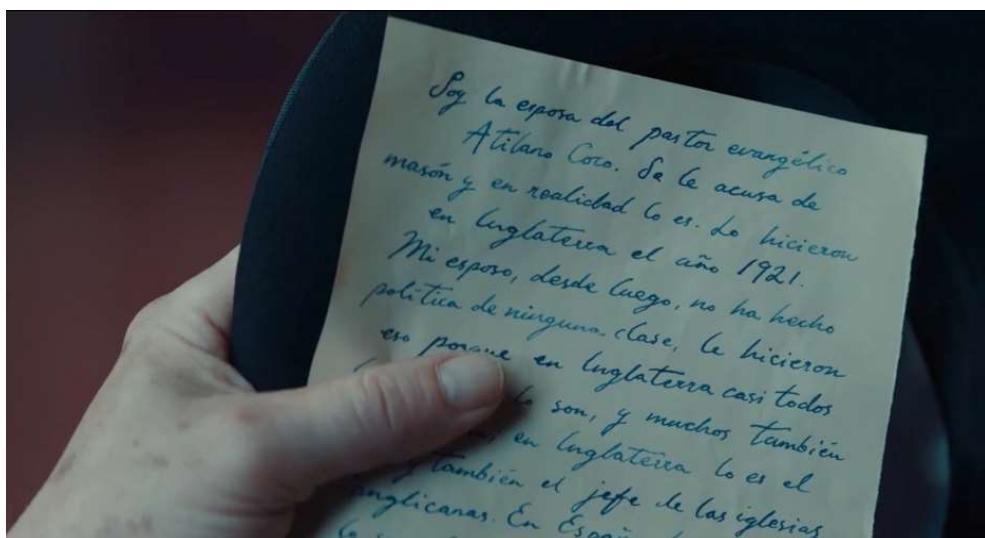 Soy la esposa del pastor evangélico
Atilano Coco. Se le acusa de
masón y en realidad lo es. Lo hicieron
en Inglaterra el año 1921.
Mi esposo, desde luego, no ha hecho
política de ninguna clase, le hicieron
eso porque en Inglaterra casi todos
lo son, y muchos también
en Inglaterra lo es el
también el jefe de las iglesias
anglicanas. En